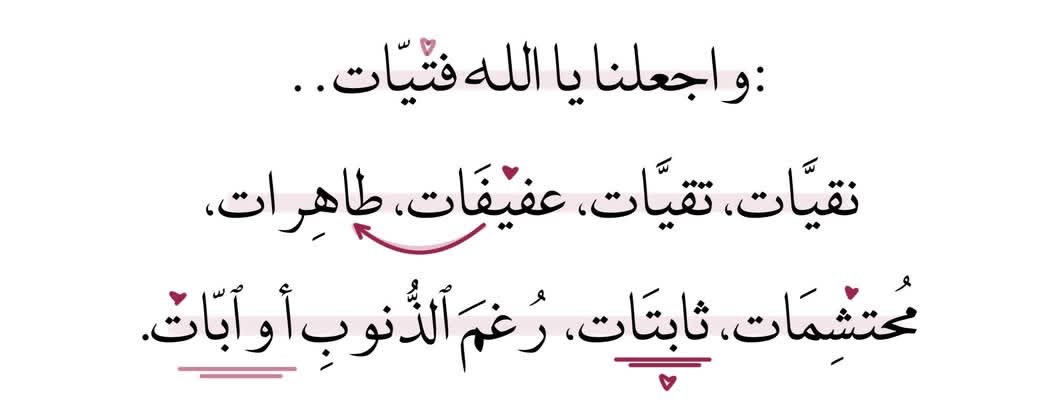 :واجعلنا يا الله فتيّات . .
نقيَّات، تقيَّات، عفيفَات، طاهِرات،
مُحتشِمَات، ثابتَات، رُغمَ ٱلذُّنوبِ أوٱبّات.